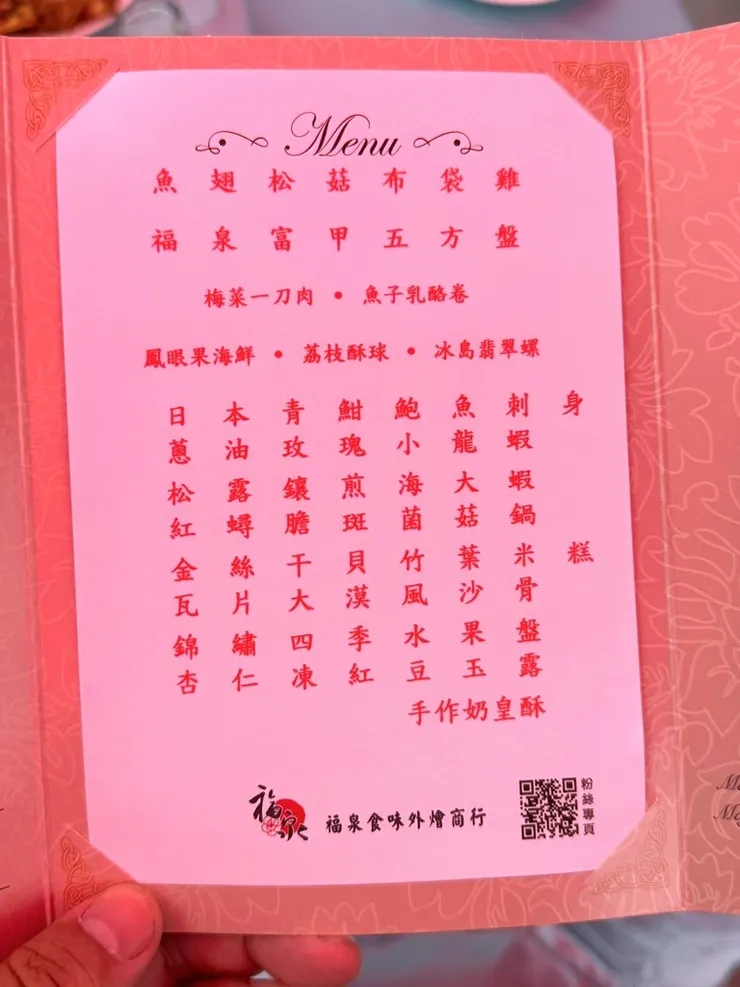 Menu
魚翅松菇布袋雞
福泉富甲五方盤
梅菜一刀肉 • 魚子乳酪卷
鳳眼果海鮮 • 荔枝酥球 • 冰島翡翠螺
日本青魽鮑魚刺身
蔥油玫瑰小龍蝦
松露鑲煎海大蝦
紅蟳膽斑菌菇鍋
金絲干貝竹葉米糕
瓦片大漠風沙骨
錦繡四季水果盤
杏仁凍紅豆玉露
手作奶皇酥
福泉
福泉食味外燴商行
粉絲專頁